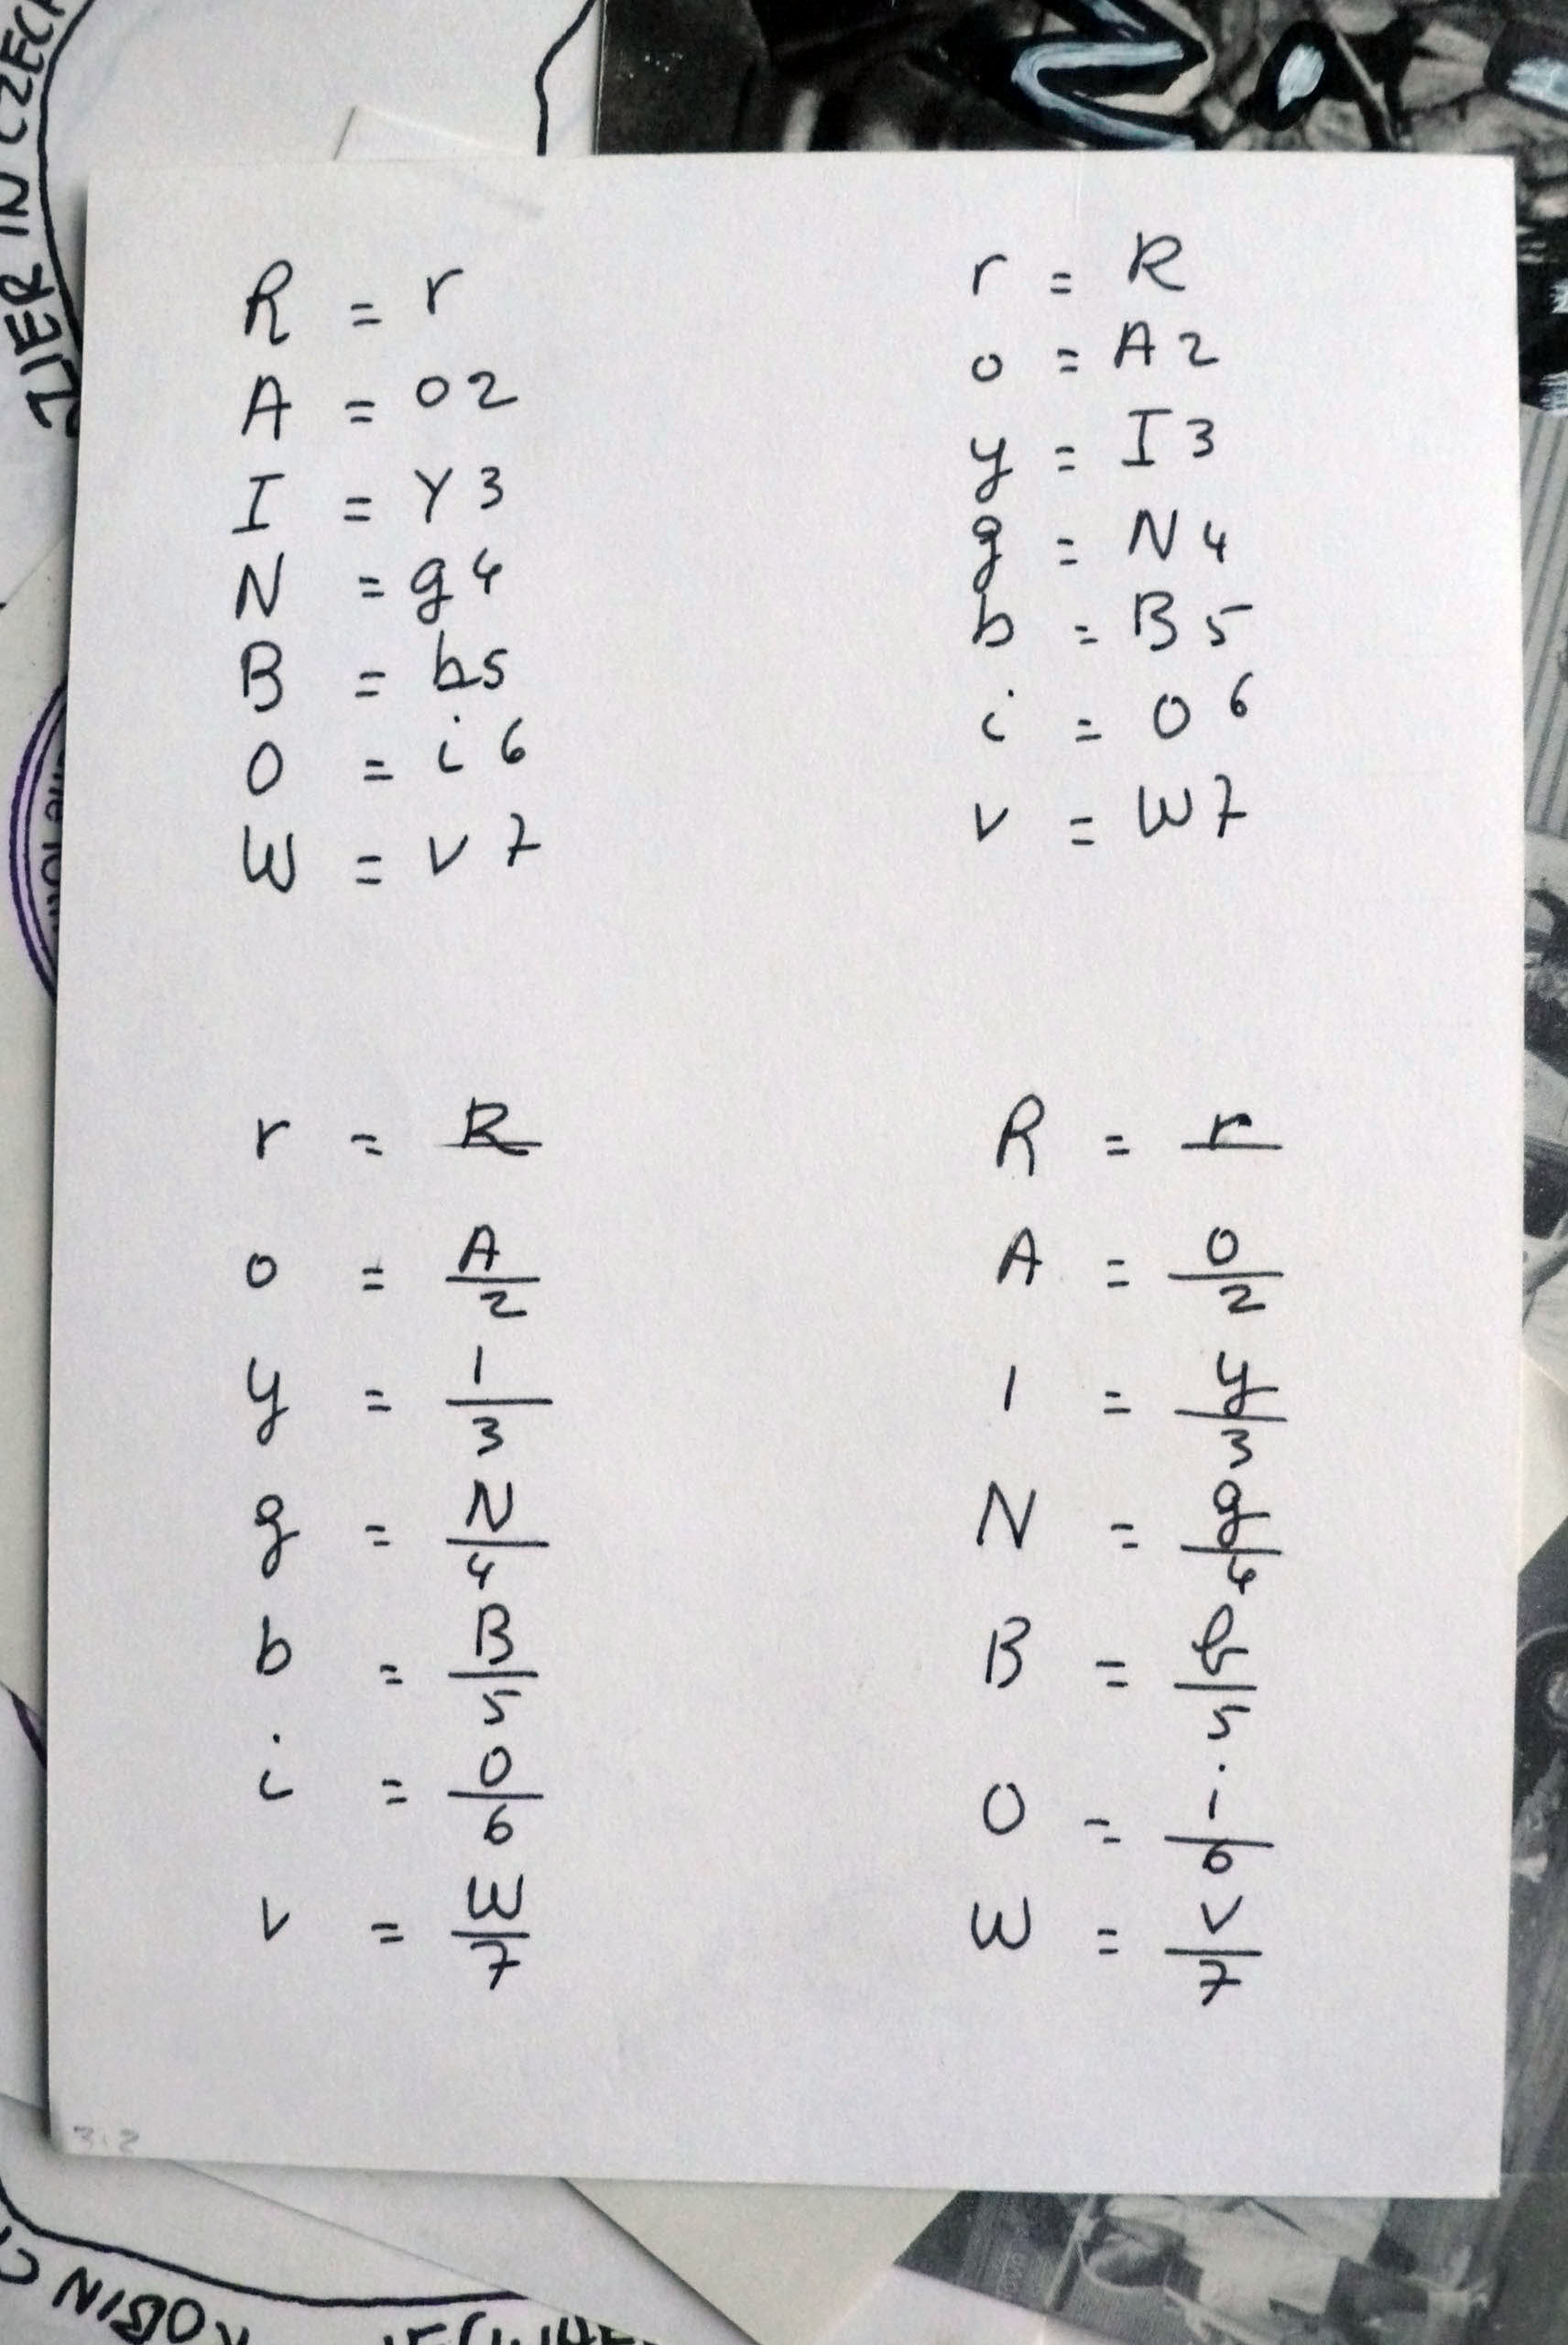 R = r
A = o2
I = Y3
N = g4
B = b5
O = i6
W = v7
r = R
o = A2
y = I3
g = N4
b = B5
i = O6
v = W7
r = R
o = A/2
y = 1/3
g = N/4
b = B/5
i = O/6
v = W/7
R = r
A = o/2
1 = y/3
N = g/4
B = b/5
O = i/6
W = v/7
3.2
IN CZECH
ROBIN